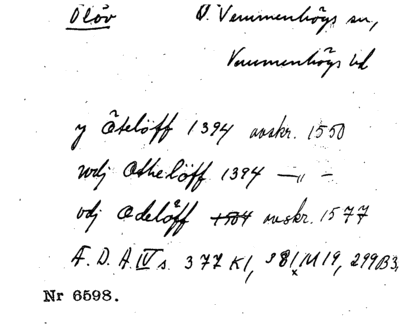 Ölöv Ö. Vemmenhögs sn,
Vemmenhögs hd
y Åtelöff 1394 avskr. 1550
wdj Athelöff 1394 —„—
vdj Adelöff 1504 avskr. 1577
Æ. D. A. IV s. 377 K1, 381 M19, 299 B3,
Nr 6598.